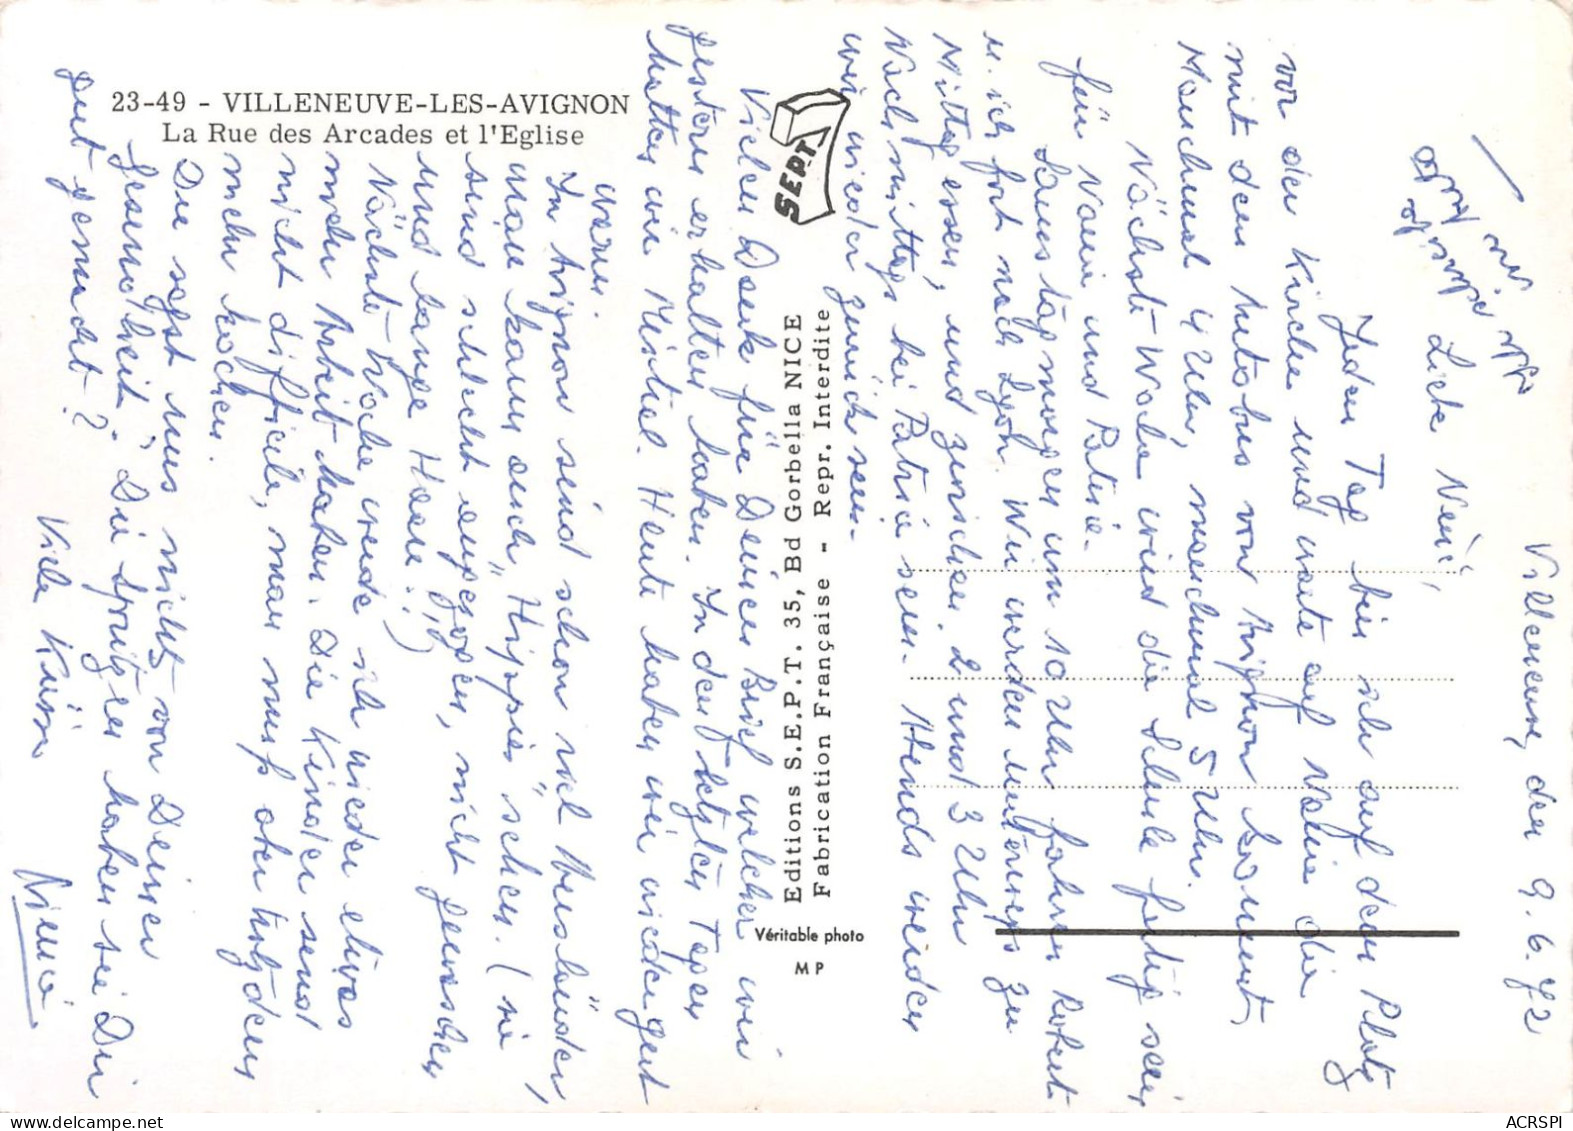 23-49 - VILLENEUVE-LES-AVIGNON
La Rue des Arcades et l'Eglise
SEPT
Editions S.E.P.T. 35, Bd Gorbella NICE
Fabrication Française - Repr. Interdite
Véritable photo
M P
Villeneuve, den 9.6.72
Liebe
Jeden Tag bin ich auf dem Platz
vor der Kirche und warte auf Valérie die
mit dem Autobus von Avignon kommt,
Manchmal 4 Uhr, manchmal 5 Uhr.
Nächste Woche wird die Schule fertig sein
für und
Samstag morgen um 10 Uhr fahren Robert
u. ich fort nach Lyon. Wir werden unterwegs zu
Mittag essen, und zwischen 2 und 3 Uhr
Nachmittags bei sein. Abends werden
wir wieder zurück sein.
Vielen Dank für Deinen Brief welchen wir
gestern erhalten haben. In den letzten Tagen
hatten wir Mistral. Heute haben wir wieder gut
warm.
In Avignon sind schon viel Ausländer,
man kann auch "Hippies" sehen. (sie
sind schlecht angezogen, nicht gewaschen
und lange Haare!!)
Nächste Woche werde ich wieder etwas
mehr Arbeit haben. Die Kinder sind
nicht difficile, man muß aber trotzdem
mehr kochen.
Du sagst uns nichts von Deiner
Gesundheit. Die Spritzen haben sie Dir
gut gemacht?
Viele Küsse